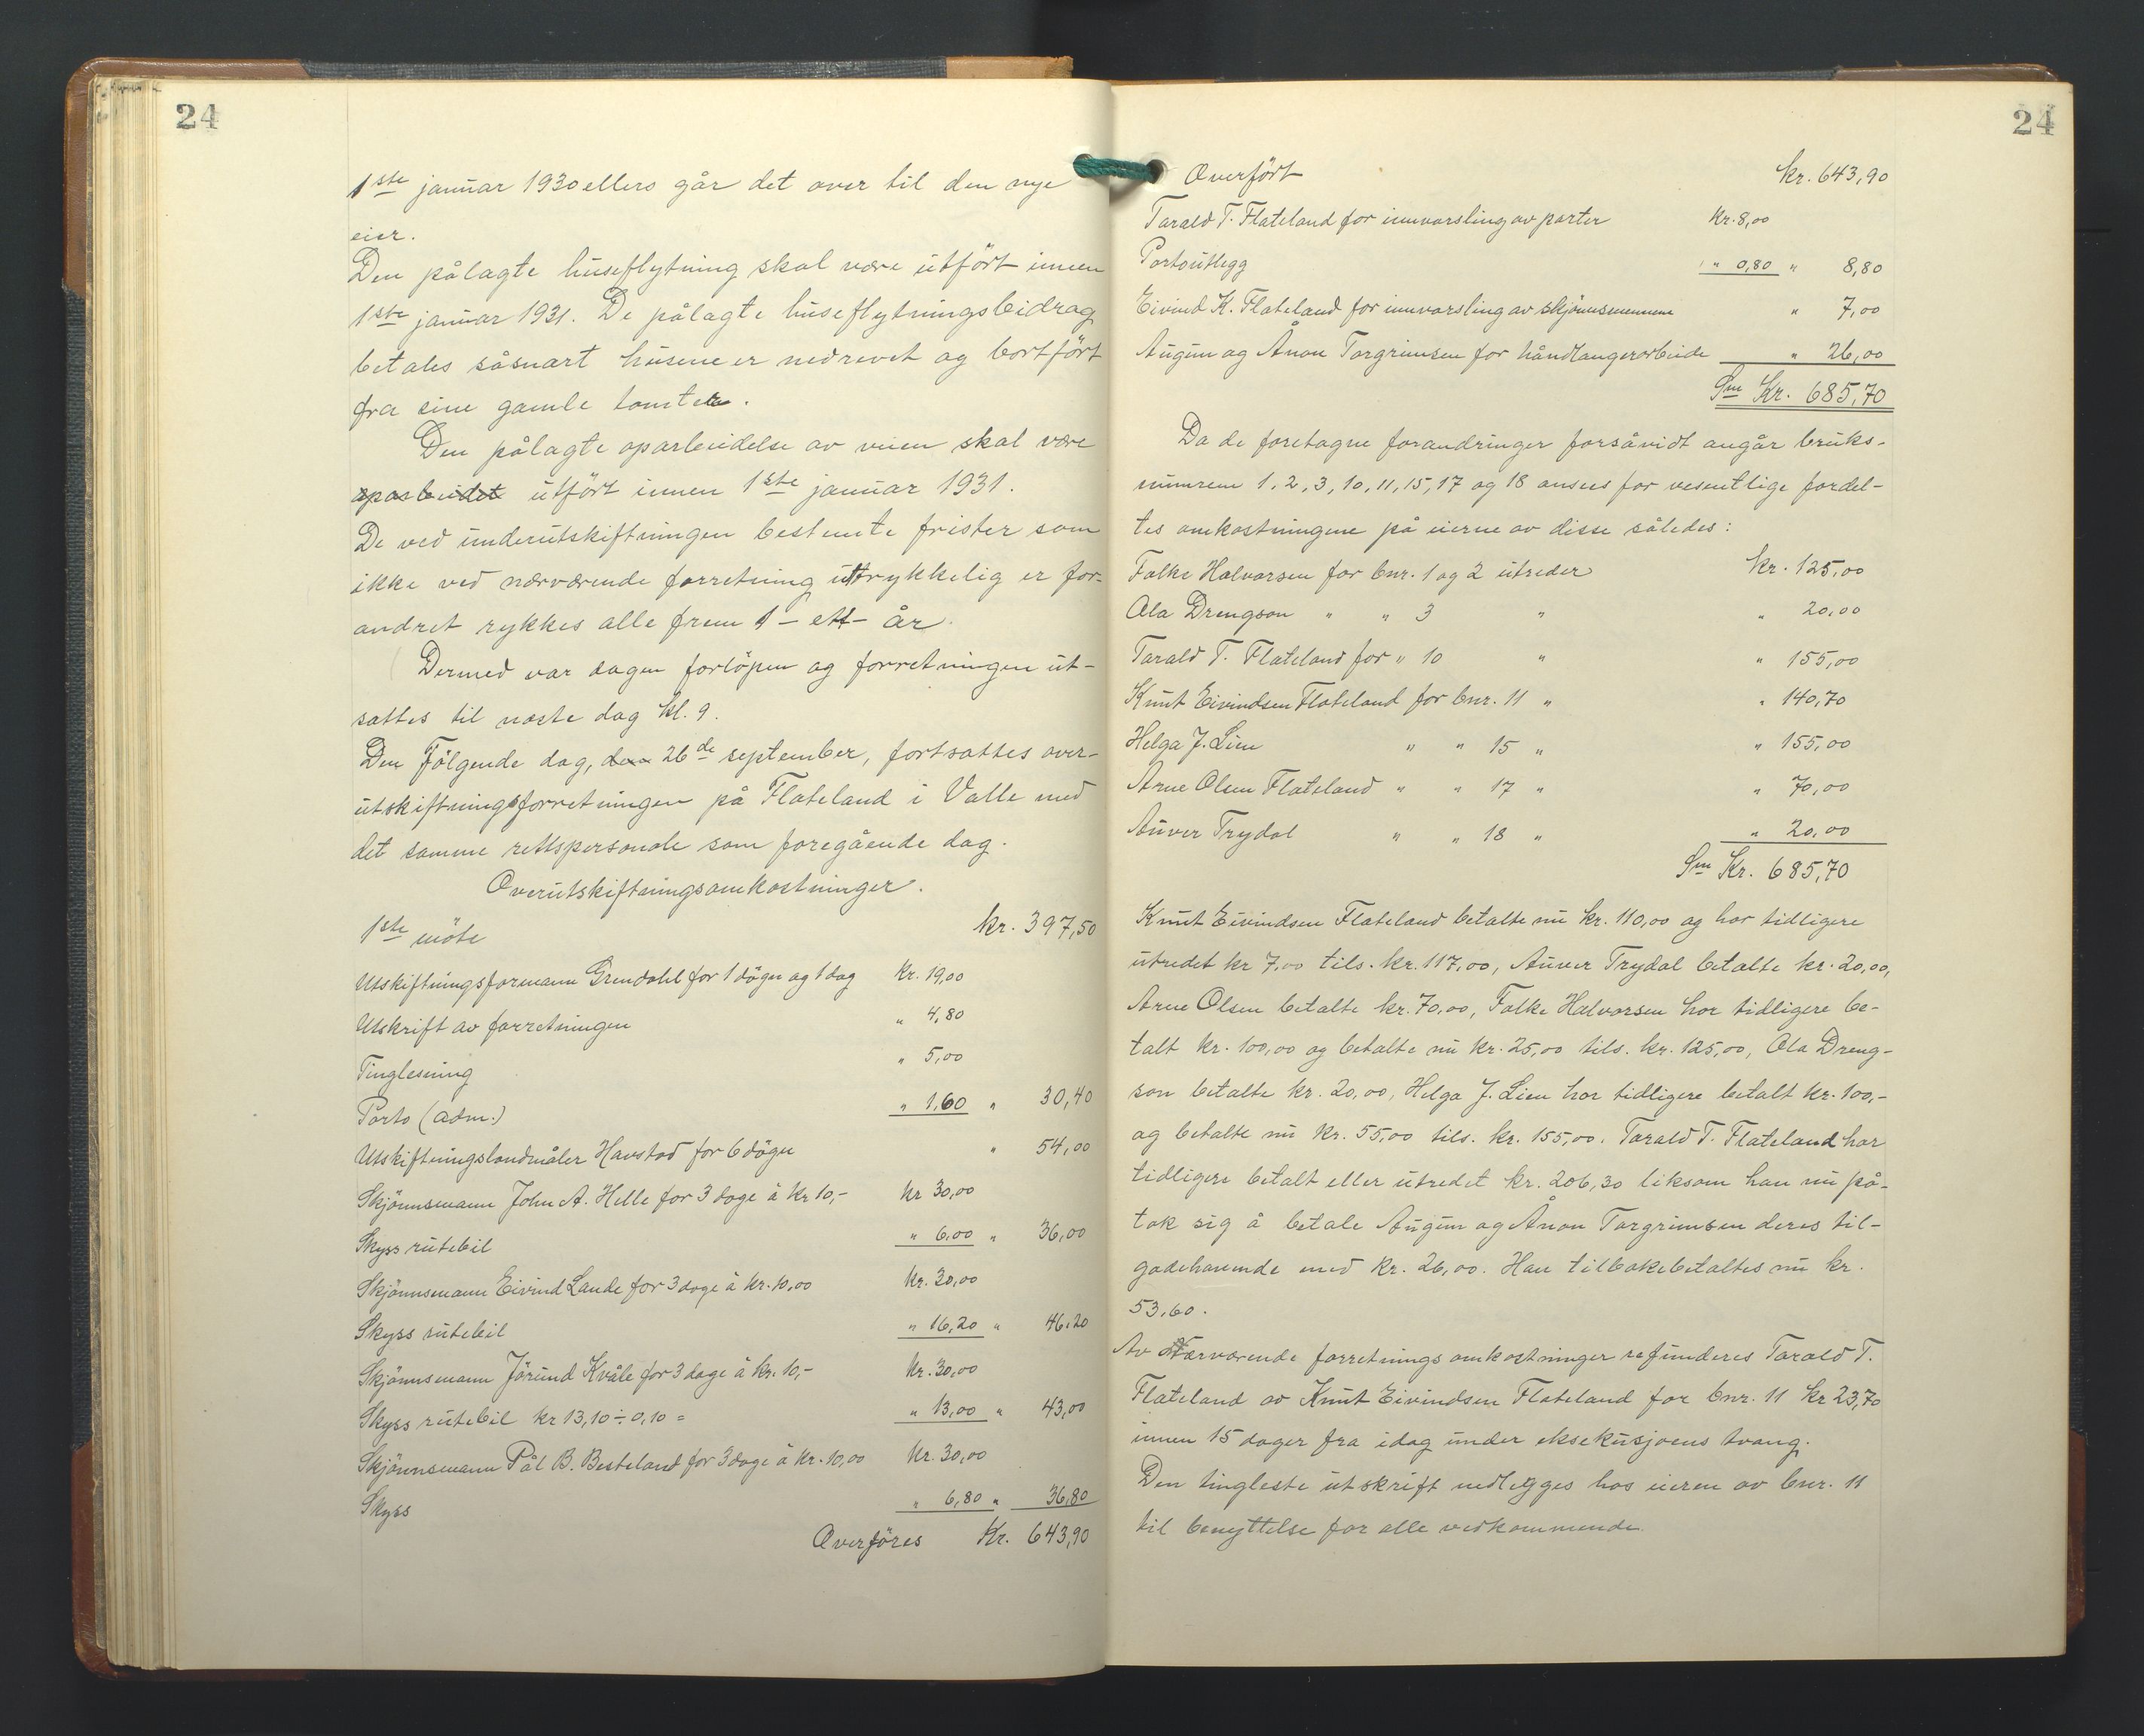 24
1ste januar 1930 ellers går det over til den nye
eier.
Den pålagte huseflytning skal være utfört innen
1ste januar 1931. De pålagte huseflytningsbidrag
betales såsnart husene er nedrevet og bortfört
fra sine gamle tomter.
Den pålagte oparbeidelse av veien skal være
oparbeidet utfört innen 1ste januar 1931.
De ved underutskiftningen bestemte frister som
ikke ved nærværende forretning uttrykkelig er for-
andret rykkes alle frem 1 - ett - år.
Dermed var dagen forlöpen og forretningen ut-
sattes til næste dag kl. 9.
Den Fölgende dag, den 26de september, fortsattes over-
utskiftningsforretningen på Flateland i Valle med
det samme rettspersonale som foregående dag.
Overutskiftningsomkostninger.
1ste möte kr. 397,50
Utskiftningsformann Grendahl for 1 dögn og 1 dag kr. 19,00
Utskrift av forretningen " 4,80
Tinglesning " 5,00
Porto (adm.) " 1,60 " 30,40
Utskiftningslandmåler Havstad for 6 dögn " 54,00
Skjönnsmann John A. Helle for 3 dage à kr 10,- kr 30,00
Skyss rutebil " 6,00 " 36,00
Skjönnsmann Eivind Lande for 3 dage à kr. 10,00 kr. 30,00
Skyss rutebil " 16,20 " 46,20
Skjönnsmann Jörund Kvåle for 3 dage à kr. 10,- kr. 30,00
Skyss rutebil kr 13,10 ÷ 0,10 = " 13,00 " 43,00
Skjönnsmann Pål B. Besteland for 3 dage à kr. 10,00 kr. 30,00
Skyss " 6,80 " 36,80
Overföres Kr. 643,90
24
Overfört kr. 643,90
Tarald T. Flateland for innvarsling av parter kr. 8,00
Portoutlegg " 0,80 " 8,80
Eivind K. Flateland for innvarsling av skjönnsmennene " 7,00
Augun og Ånon Torgrimsen for håndlangerarbeide " 26,00
Sm Kr. 685,70
Da de foretagne forandringer forsåvidt angår bruks-
numrene 1, 2, 3, 10, 11, 15, 17 og 18 ansees for vesentlige fordel-
tes omkostningene på eierne av disse således:
Folke Halvorsen for bnr. 1 og 2 utreder kr. 125,00
Ola Drengson " " 3 " " 20,00
Tarald T. Flateland for " 10 " " 155,00
Knut Eivindsen Flateland for bnr. 11 " " 140,70
Helga J. Lien " " 15 " " 155,00
Arne Olsen Flateland " " 17 " " 70,00
Auver Trydal " " 18 " " 20,00
Sm Kr. 685,70
Knut Eivindsen Flateland betalte nu kr. 110,00 og har tidligere
utredet kr 7,00 tils. kr. 117,00, Auver Trydal betalte kr. 20,00,
Arne Olsen betalte kr. 70,00, Folke Halvorsen har tidligere be-
talt kr. 100,00 og betalte nu kr. 25,00 tils. kr. 125,00, Ola Dreng-
son betalte kr. 20,00, Helga J. Lien har tidligere betalt kr. 100,-
og betalte nu kr. 55,00 tils. kr. 155,00. Tarald T. Flateland har
tidligere betalt eller utredet kr. 206,30 liksom han nu på-
tok sig å betale Augun og Ånon Torgrimsen deres til-
godehavende med kr. 26,00. Han tilbakebetaltes nu kr.
53,60.
Av Nærværende forretnings omkostninger refunderes Tarald T.
Flateland av Knut Eivindsen Flateland for bnr. 11 kr 23,70
innen 15 dager fra idag under eksekusjoens tvang.
Den tingleste utskrift nedlegges hos eieren av bnr. 11
til benyttelse for alle vedkommende.